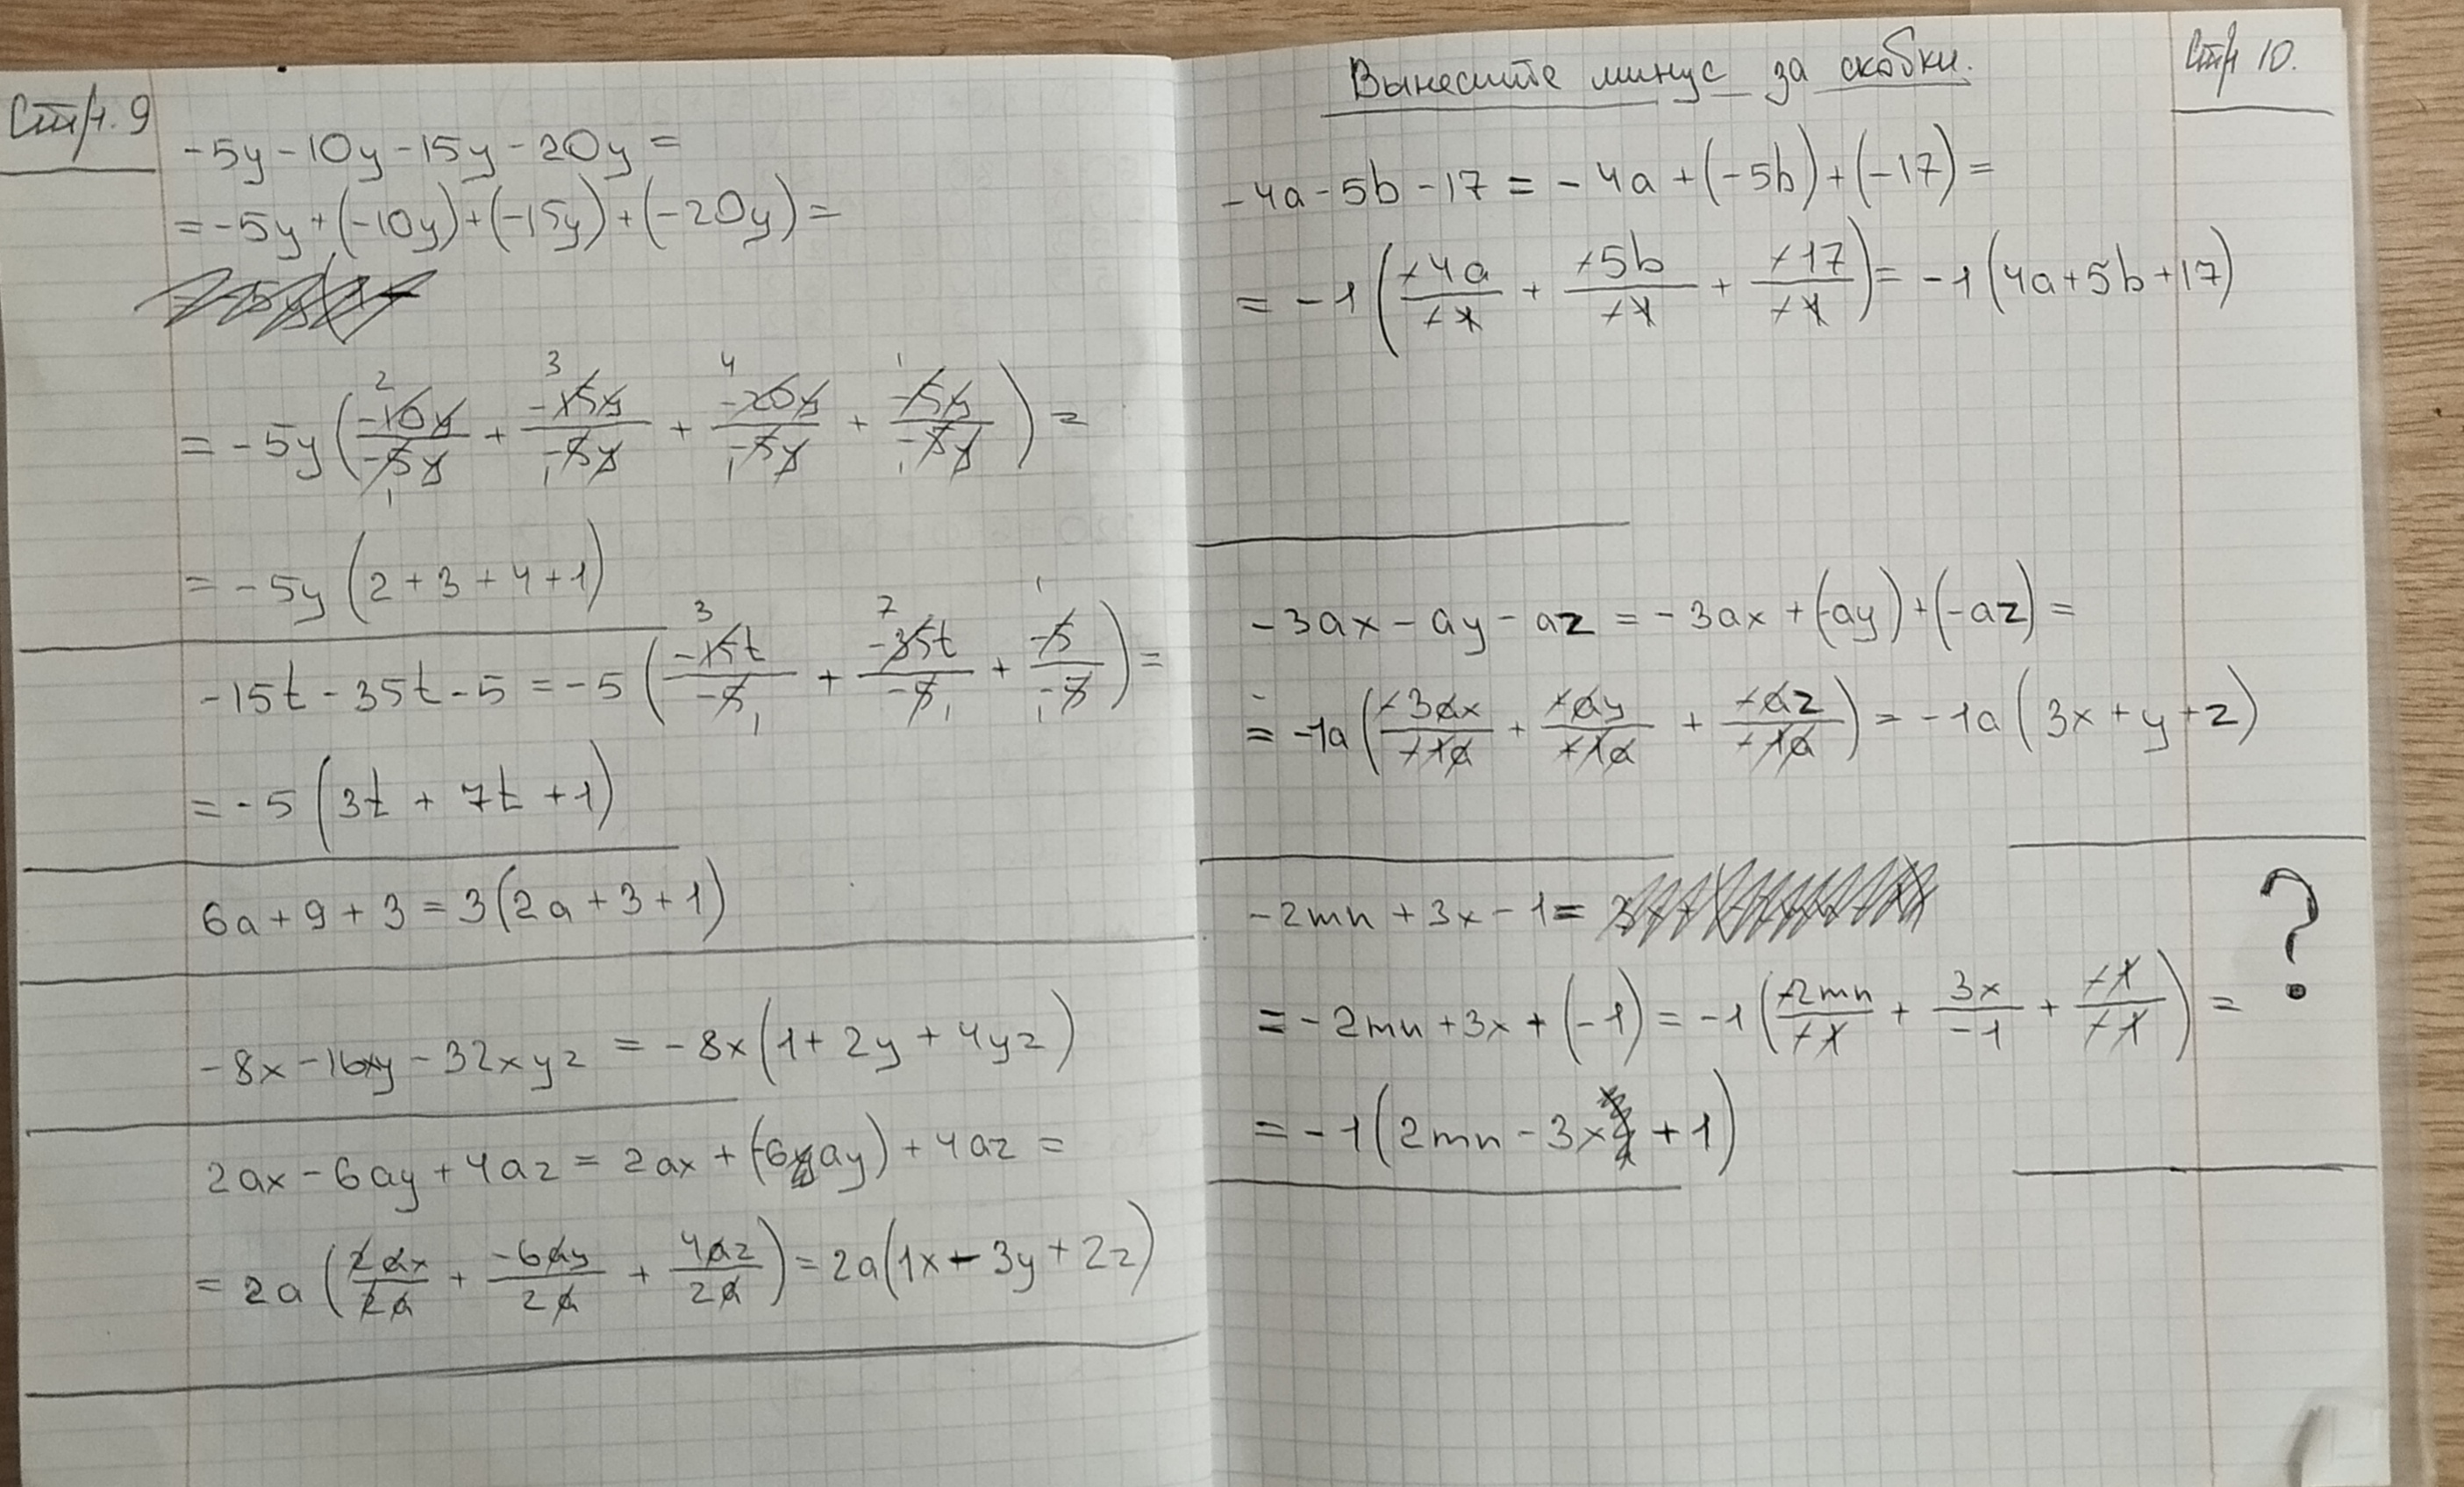 Стр. 9
-5y-10y-15y-20y=
=-5y+(-10y)+(-15y)+(-20y)=
=-5y(-10y/-5y + -15y/-5y + -20y/-5y + -5y/-5y)=
=-5y(2+3+4+1)
-15t-35t-5=-5(-15t/-5 + -35t/-5 + -5/-5)=
=-5(3t+7t+1)
6a+9+3=3(2a+3+1)
-8x-16xy-32xyz=-8x(1+2y+4yz)
2ax-6ay+4az=2ax+(-6ay)+4az=
=2a(2ax/2a + -6ay/2a + 4az/2a)=2a(1x-3y+2z)
Стр 10.
Вынесите минус за скобки.
-4a-5b-17=-4a+(-5b)+(-17)=
=-1(-4a/-1 + -5b/-1 + -17/-1)=-1(4a+5b+17)
-3ax-ay-az=-3ax+(-ay)+(-az)=
=-1a(-3ax/-1a + -ay/-1a + -az/-1a)=-1a(3x+y+z)
-2mn+3x-1=
=-2mn+3x+(-1)=-1(-2mn/-1 + 3x/-1 + -1/-1)= ?
=-1(2mn-3x+1)